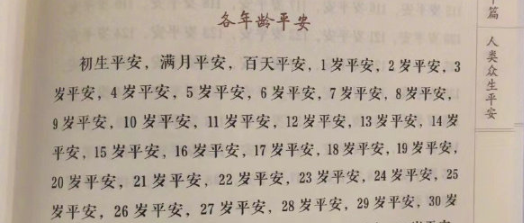 各年龄平安
初生平安，满月平安，百天平安，1岁平安，2岁平安，3
岁平安，4岁平安，5岁平安，6岁平安，7岁平安，8岁平安，
9岁平安，10岁平安，11岁平安，12岁平安，13岁平安，14岁
平安，15岁平安，16岁平安，17岁平安，18岁平安，19岁平安，
20岁平安，21岁平安，22岁平安，23岁平安，24岁平安，25
岁平安，26岁平安，27岁平安，28岁平安，29岁平安，30岁
篇
人类众生平安